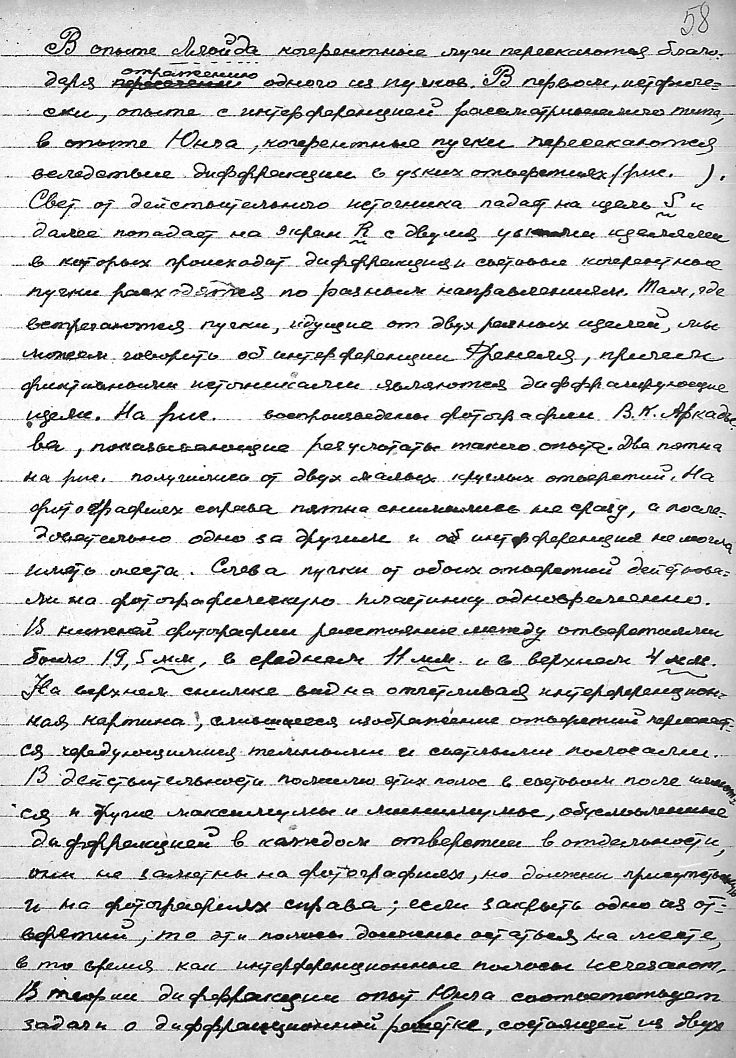 58
В опыте Ллойда когерентные лучи пересекаются благо-
даря отражению одного из пучков. В первом, историче-
ски, опыте с интерференцией рассматриваемого типа,
в опыте Юнга, когерентные пучки пересекаются
вследствие диффракции в узких отверстиях (рис. ).
Свет от действительного источника падает на щель S и
далее попадает на экран R с двумя узкими щелями
в которых происходит диффракция и световые когерентные
пучки расходятся по разным направлениям. Там, где
встречаются пучки, идущие от двух разных щелей, мы
можем говорить об интерференции Френеля, причем
фиктивными источниками являются диффрагирующие
щели. На рис. воспроизведены фотографии В.К. Аркадье-
ва, показывающие результаты такого опыта. Два пятна
на рис. получились от двух малых круглых отверстий. На
фотографиях справа пятна снимались не сразу, а после-
довательно одно за другим и об интерференция не могла
иметь места. Слева пучки от обоих отверстий действова-
ли на фотографическую пластинку одновременно.
В нижней фотографии расстояние между отверстиями
было 19,5 мм, в среднем 11 мм и в верхнем 4 мм.
На верхнем снимке видна отчетливая интерференцион-
ная картина, слившееся изображение отверстий пересекает-
ся чередующимися темными и светлыми полосами.
В действительности помимо этих полос в световом поле имеют-
ся и другие максимумы и минимумы, обусловленные
диффракцией в каждом отверстии в отдельности,
они не заметны на фотографиях, но должны присутствовать
и на фотографиях справа; если закрыть одно из от-
верстий, то эти полосы должны остаться на месте,
в то время как интерференционные полосы исчезают.
В теории диффракции опыт Юнга соответствует
задаче о диффракционной решетке, состоящей из двух